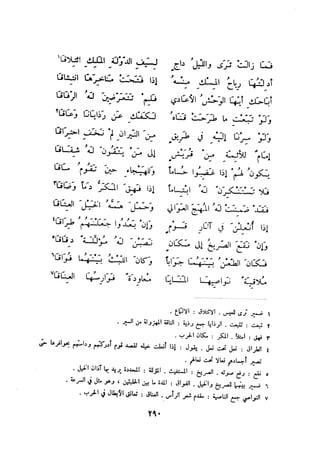 فما زالت ترى والليل داج لسيف الدولة الملك ائتلاقا¹
أدلتها رياح المسك منه إذا فتحت مناخرها انتشاقا
أباحك أيها الوحش الأعادي فلم تتعرضين له الرفاقا
ولو تبعت ما طرحت قناه لكفك عن رذايانا وعاقا²
ولو سرنا إليه في طريق من النيران لم نخف احتراقا
إمام للأئمة من قريش إلى من يتقون له شقاقا
يكون لهم إذا غضبوا حساما وللهيجاء حين تقوم ساقا
فلا تستنكرن له ابتساما إذا فهق المكر دما وضاقا³
فقد ضمنت له المهج العوالي وحمل همه الخيل العتاقا
إذا أنعلن في آثار قوم وإن بعدوا جعلتهم طراقا⁴
وإن نقع الصريخ إلى مكان نصبن له مؤللة دقاقا⁵
فكان الطعن بينهما جوابا وكان اللبث بينهما فواقا⁶
ملاقية نواصيها المنايا معاودة فوارسها العناقا⁷
١ ضمير ترى للعيس . الائتلاق : الالتماع .
٢ تبعت : تتبعت . الرذايا جمع رذية : الناقة المهزولة من السير .
٣ فهق : امتلأ . المكر : مكان الحرب .
٤ الطراق : نعل تحت نعل . يقول : إذا أنعلت خيله لقصد قوم أدركتهم وداستهم بحوافرها حتى
تصير أجسادهم نعالا تحت نعالهم .
٥ نقع : رفع صوته . الصريخ : المستغيث . المؤللة : المحددة يريد بها آذان الخيل .
٦ ضمير بينهما للصريخ والخيل . الفواق : المدة ما بين الحلبتين ، وهو مثل في السرعة .
٧ النواصي جمع الناصية : مقدم شعر الرأس . العناق : تعانق الأبطال في الحرب .
٢٩٠